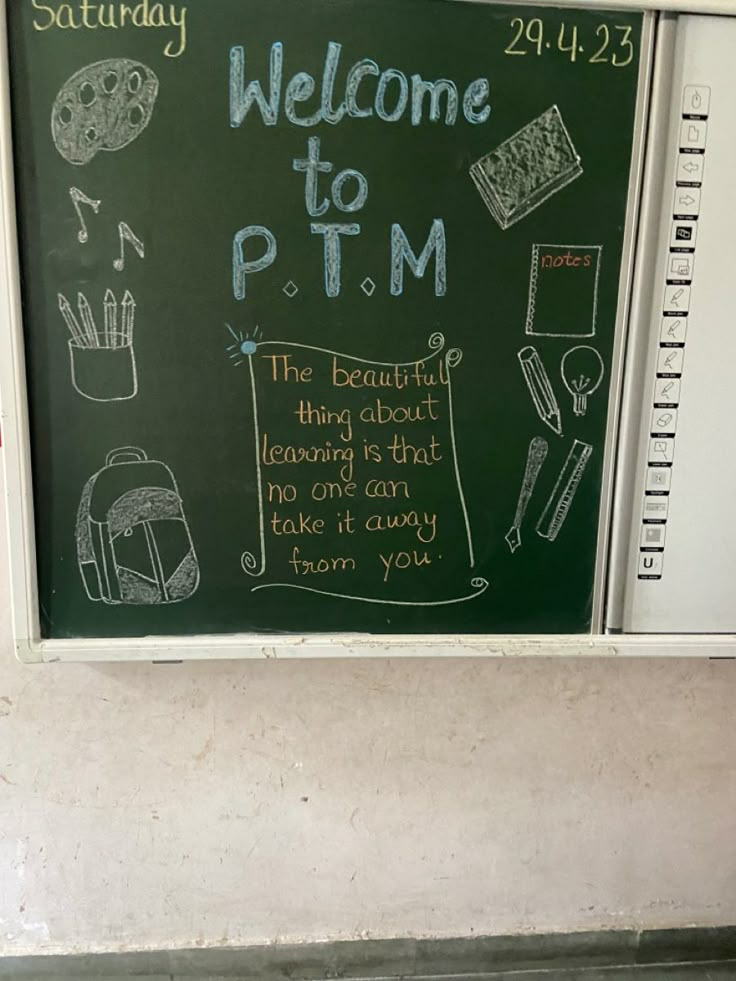 Saturday
29.4.23
Welcome
to
P.T.M
notes
The beautiful
thing about
learning is that
no one can
take it away
from you.
U